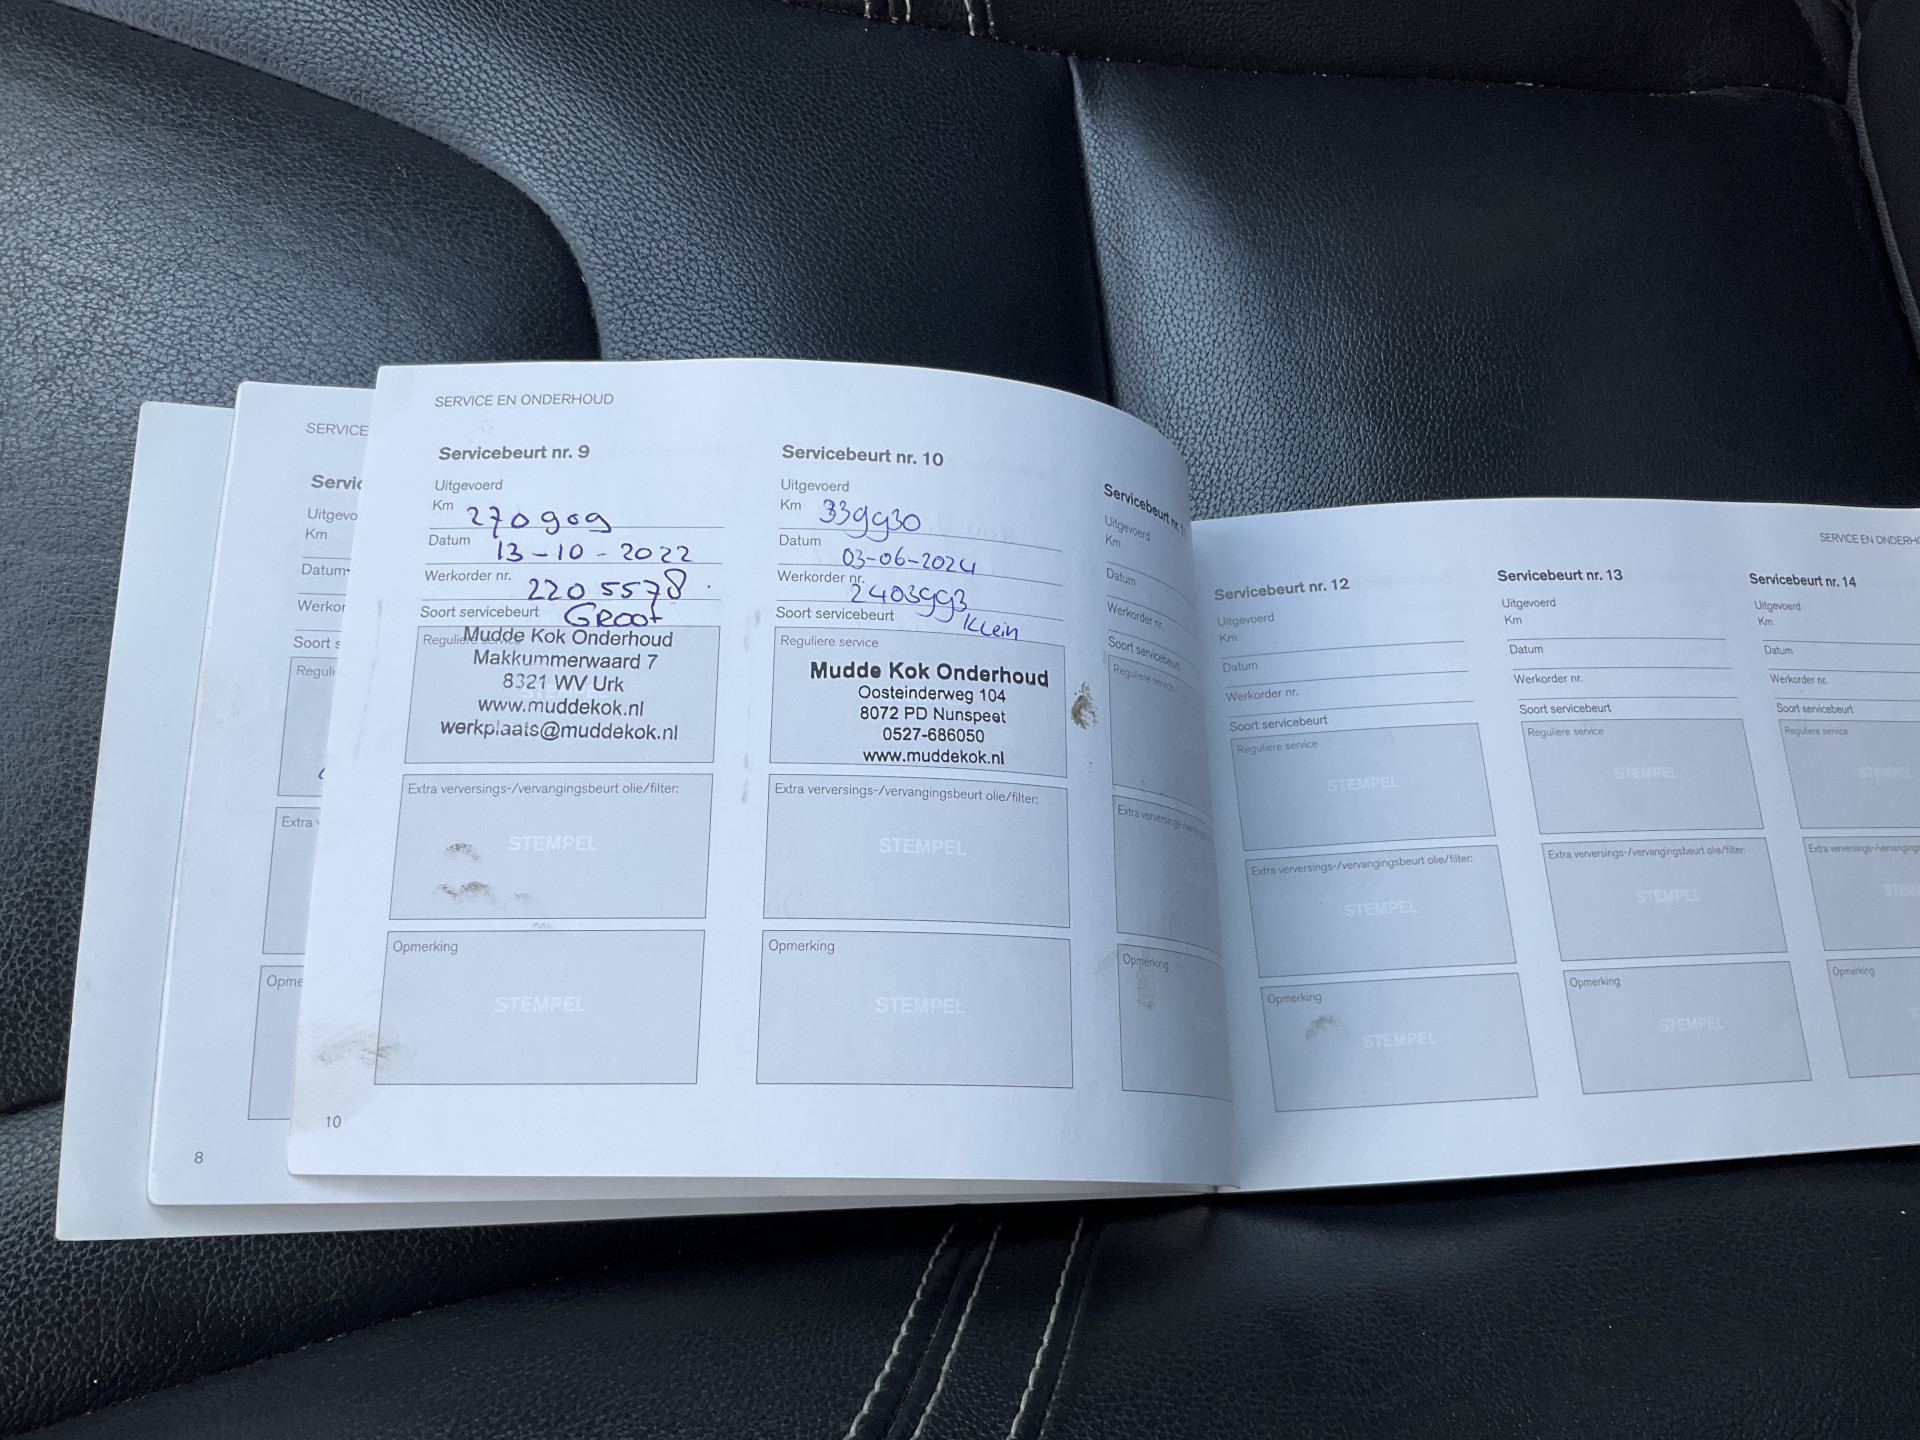 SERVICE EN ONDERHOUD
Servicebeurt nr. 9
Uitgevoerd
Km 270909
Datum 13-10-2022
Werkorder nr. 2205578
Soort servicebeurt GROOT
Reguliere service
Mudde Kok Onderhoud
Makkummerwaard 7
8321 WV Urk
www.muddekok.nl
werkplaats@muddekok.nl
Extra verversings-/vervangingsbeurt olie/filter:
STEMPEL
Opmerking
STEMPEL
10
Servicebeurt nr. 10
Uitgevoerd
Km 339930
Datum 03-06-2024
Werkorder nr. 2403993
Soort servicebeurt Klein
Reguliere service
Mudde Kok Onderhoud
Oosteinderweg 104
8072 PD Nunspeet
0527-686050
www.muddekok.nl
Extra verversings-/vervangingsbeurt olie/filter:
STEMPEL
Opmerking
STEMPEL
Servicebeurt nr. 11
Uitgevoerd
Km
Datum
Werkorder nr.
Soort servicebeurt
Reguliere service
Extra
Opmerking
Servicebeurt nr. 12
Uitgevoerd
Km
Datum
Werkorder nr.
Soort servicebeurt
Reguliere service
STEMPEL
Extra verversings-/vervangingsbeurt olie/filter:
STEMPEL
Opmerking
STEMPEL
Servicebeurt nr. 13
Uitgevoerd
Km
Datum
Werkorder nr.
Soort servicebeurt
Reguliere service
STEMPEL
Extra verversings-/vervangingsbeurt olie/filter:
STEMPEL
Opmerking
STEMPEL
SERVICE EN ONDERHO
Servicebeurt nr. 14
Uitgevoerd
Km
Datum
Werkorder nr.
Soort servicebeurt
Reguliere service
STEMPEL
Extra verversings-/vervangings
Opmerking
SERVICE
Servic
Uitgevo
Km
Datum
Werkor
Soort s
Reguli
Extra
Opme
8